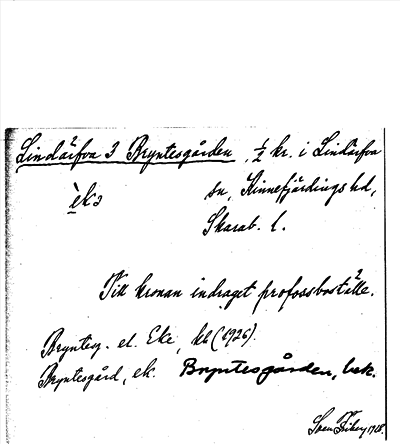 Lindärfva 3 Bryntesgården, ½ kr. i Lindärfva
èkɔ sn, Kinnefjärdings hd,
Skarab. l.
Till kronan indraget profossboställe.
Bryntesg. el. Eke, kb (1926).
Bryntesgård, ek. Bryntesgården, bek.
1918.